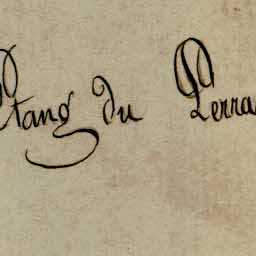 Etang du Perra